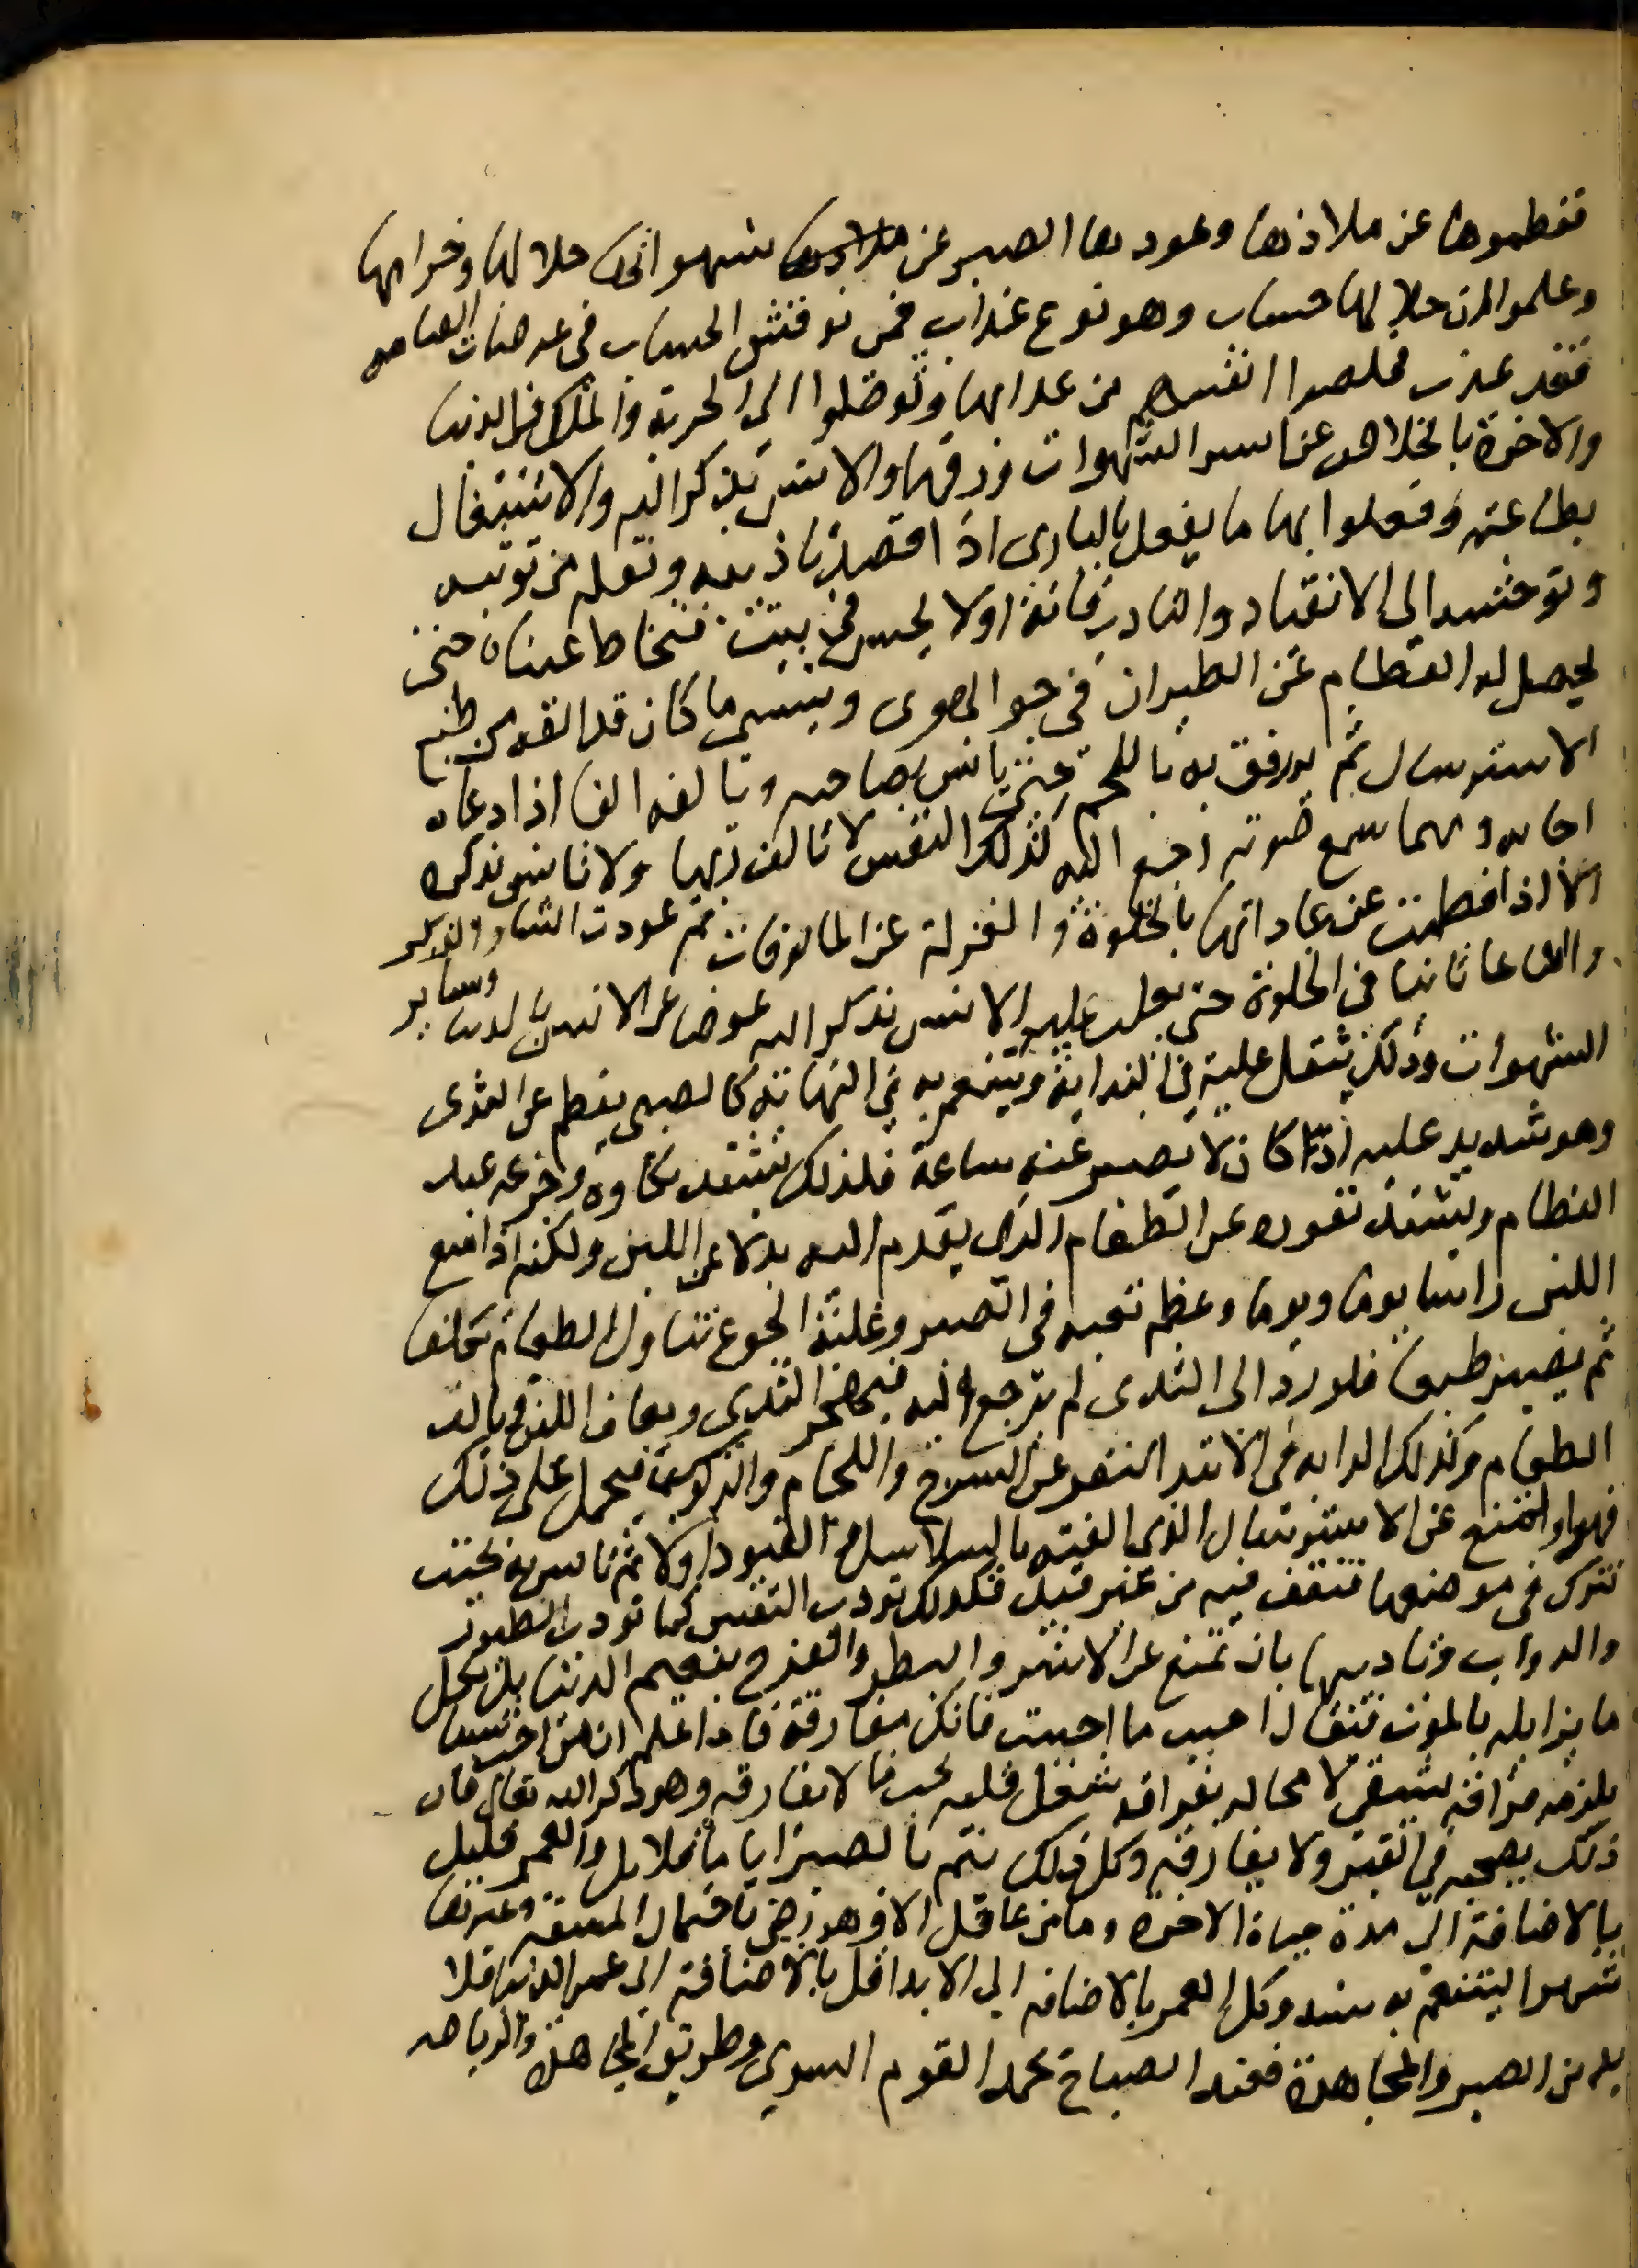 فقطموها عن ملاذها وعودها الصبر عن شهواتها حلالها وحرامها
وعلموا ان حلالها حساب وهو نوع عذاب فمن نوقش الحساب في عرصات القيامه
فقد عذب فخلصوا انفسهم من عذابها وتوصلوا الى الحرية والملك في الدنيا
والاخرة بالخلاص عن اسر الشهوات ورقها والانس بذكر الله والاشتغال
بطاعته وفعلوا بها ما يفعل بالبازى اذا قصد تاديبه ونقله من توثبه
وتوحشه الى الانقياد والتادب فانه اولا يحبس في بيت فتخاط عيناه حتى
يحصل له الفطام عن الطيران في جو الهوى وينسى ما كان قد الفه من طبع
الاسترسال ثم يرفق به باللحم حتى يانس بصاحبه ويالفه الفا اذا دعاه
اجابه ومهما سمع صوته رجع اليه كذلك النفس لا تالف ربها ولا تانس بذكره
الا اذا فطمت عن عاداتها بالخلوة والعزلة عن المالوفات ثم عودت الثنا والذكر
والدعا ثانيا في الخلوة حتى يغلب عليها الانس بذكر الله عوضا عن الانس بالدنيا وساير
الشهوات وذلك يثقل عليه في البداية ويتنعم به في النهاية كالصبي يفطم عن الثدى
وهو شديد عليه اذا كان لا يصبر عنه ساعة فلذلك يشتد بكاوه وجزعه عند
الفطام ويشتد نفوره عن الطعام الذي يقدم اليه بدلا عن اللبن ولكنه اذا منع
اللبن راسا يوما ويوما وعظم تعبه في الصبر وغلبة الجوع تناول الطعام تكلفا
ثم يصير طبعا فلو رد الى الثدى لم يرجع اليه فيهجر الثدى ويعاف اللبن ويالف
الطعام وكذلك الدابه في الابتدا تنفر عن السرج واللجام والركوب فتحمل على ذلك
قهرا وتمنع عن الاسترسال الذي الفته بالسلاسل والقيود اولا ثم تانس به بحيث
تترك في موضعها فتقف فيه من غير قيد فكذلك تودب النفس كما تودب الطيور
والدواب وتاديبها بان تمنع عن الاشر والبطر والفرح بنعيم الدنيا بل بكل
ما يزايله بالموت فيقال احبب ما احببت فانك مفارقه فاذا علم ان من احب شيا
يلزمه فراقه ليشقى لا محاله بفراقه شغل قلبه بحب ما لا يفارقه وهو ذكر الله تعالى فان
ذلك يصحبه في القبر ولا يفارقه وكل ذلك يتم بالصبر اياما قلايل والعمر قليل
بالاضافة الى مدة حياة الاخرة وما من عاقل الا وهو رضي باحتمال المشقه وغيرها
شهرا ليتنعم به سنه وكل العمر بالاضافه الى الابد اقل بالاضافة الى عمر الدنيا فلا
بد من الصبر والمجاهدة فعند الصباح يحمد القوم السرى وطريق المجاهدة والرياضه